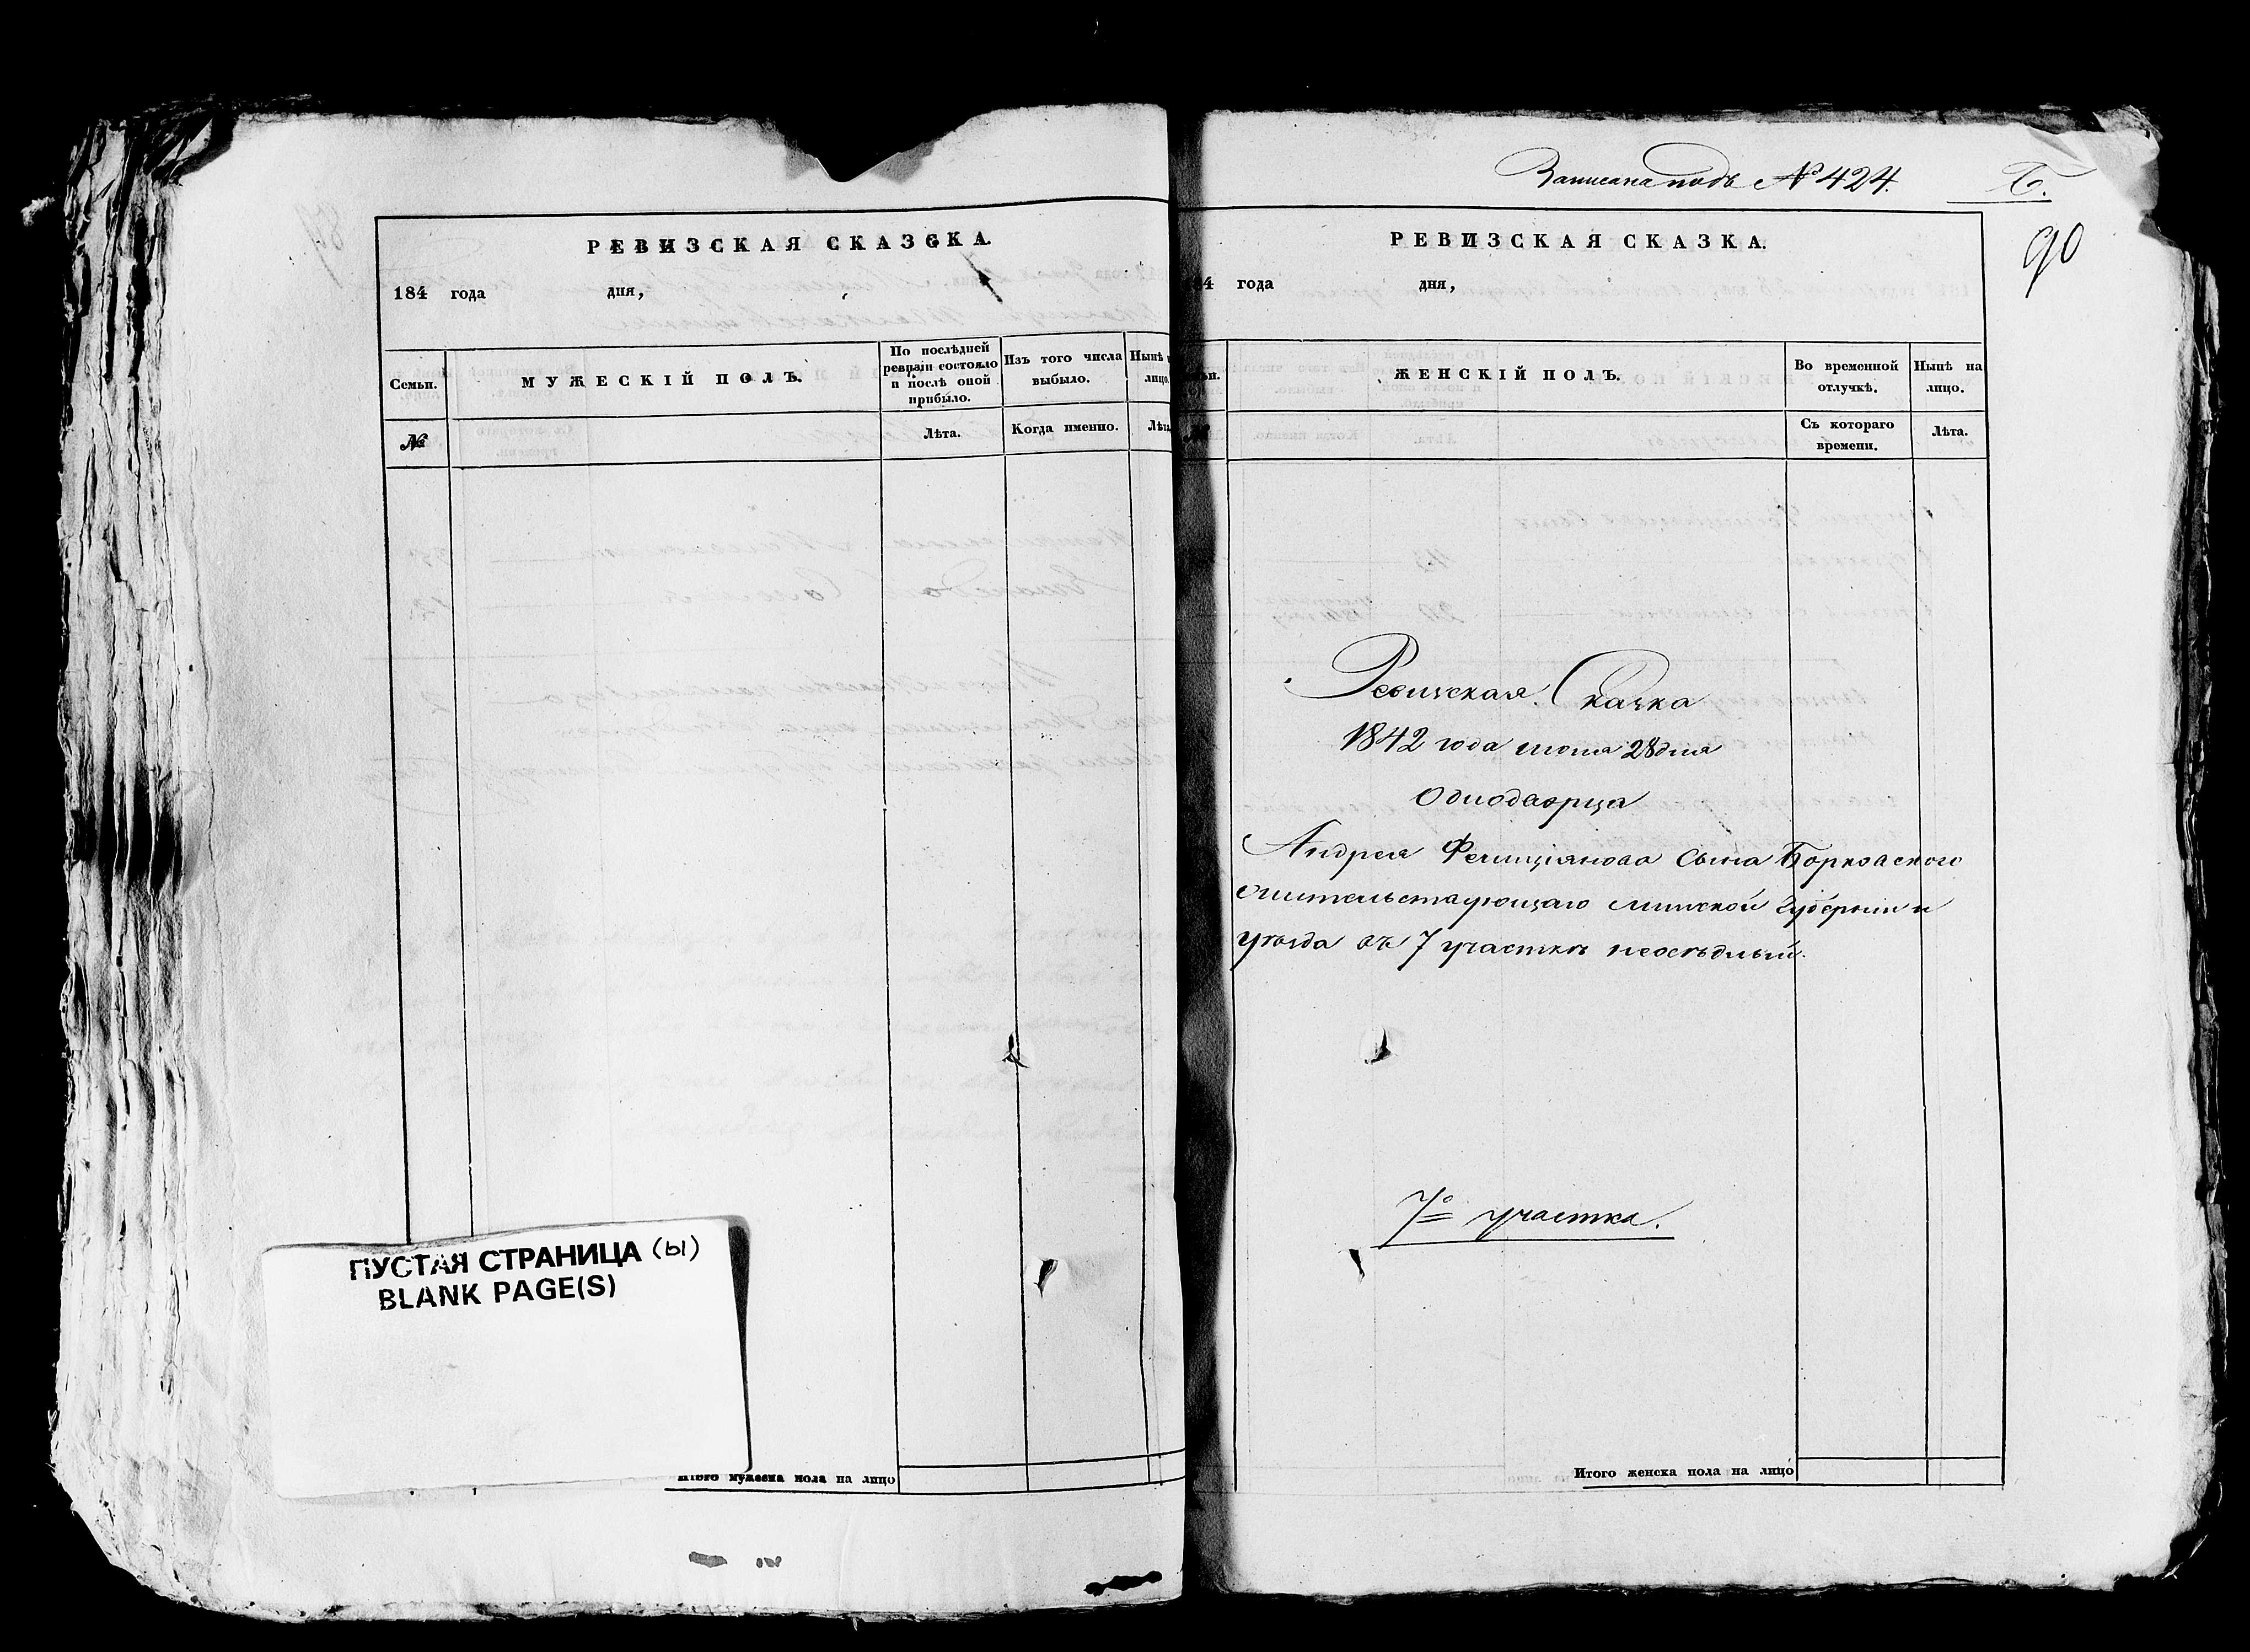 РЕВИЗСКАЯ СКАЗКА.
184 года дня,
Семьи.
МУЖЕСКІЙ ПОЛЪ.
По послѣдней
ревизіи состояло
и послѣ оной
прибыло.
Изъ того числа
выбыло.
Нынѣ
лицо.
№
Лѣта.
Когда именно.
ПУСТАЯ СТРАНИЦА (Ы)
BLANK PAGE(S)
Итого мужеска пола на лицо
Записана подъ № 424.
Б.
90
РЕВИЗСКАЯ СКАЗКА.
4 года дня,
ЖЕНСКІЙ ПОЛЪ.
Во временной
отлучкѣ.
Нынѣ на
лицо.
Съ котораго
времени.
Лѣта.
Ревизская Сказка
1842 года июня 28 дня
Однодворца
Андрея Фелиціянова Сына Борковского
жительствующаго минской Губерніи и
уѣзда въ 7 участкѣ неосѣдлый.
7го участка.
Итого женска пола на лицо